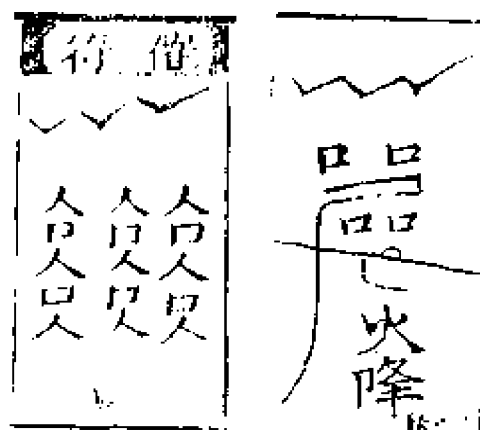 口口
口口
火
降
催符
人口人口人
人口人口人
人口人口人